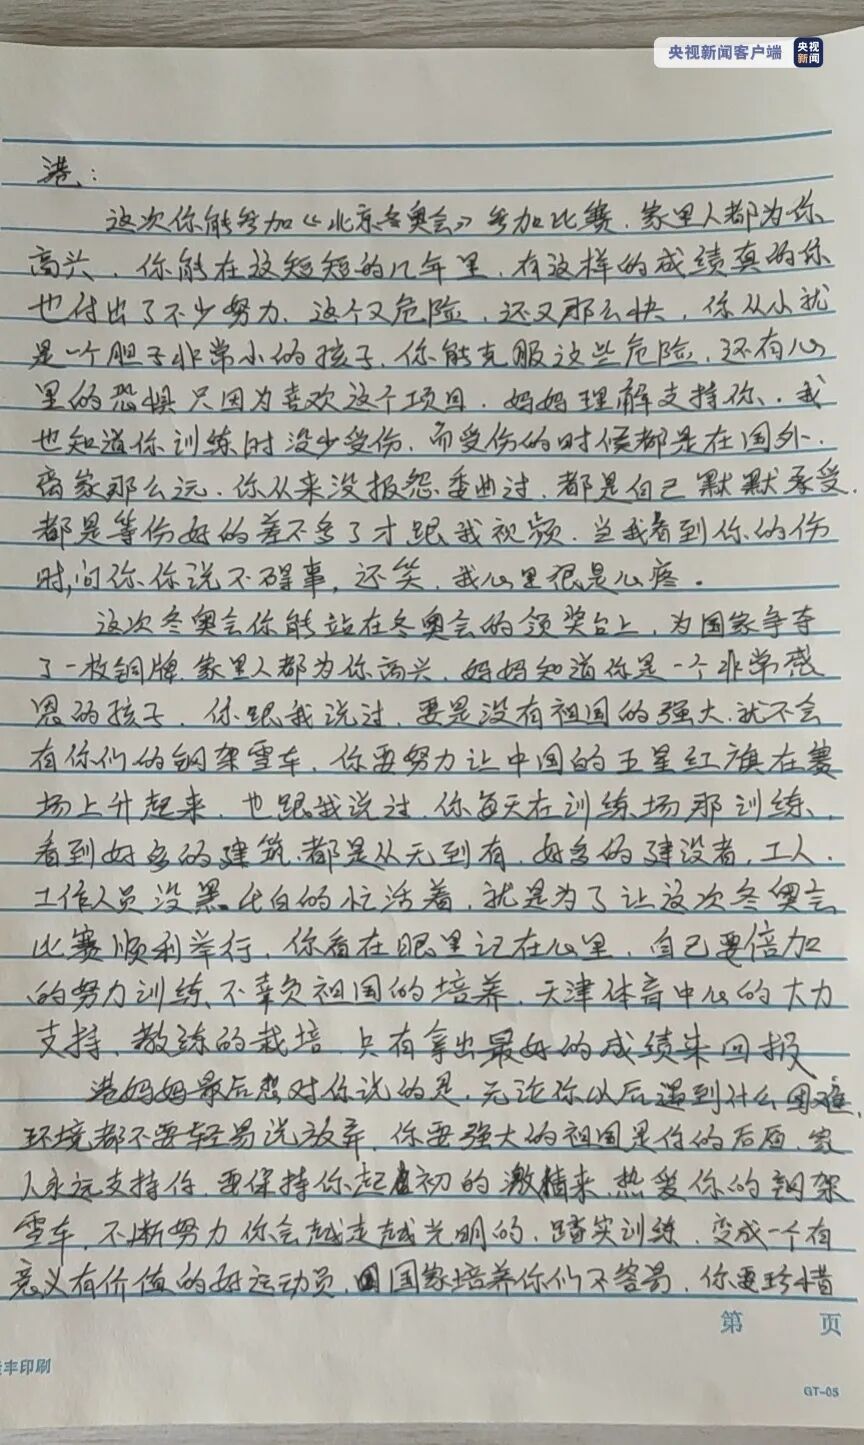 央视新闻客户端
央视
新闻
港：
这次你能参加《北京冬奥会》参加比赛．家里人都为你
高兴．你能在这短短的几年里．有这样的成绩真的你
也付出了不少努力．这个又危险．还又那么快．你从小就
是一个胆子非常小的孩子．你能克服这些危险．还有心
里的恐惧只因为喜欢这个项目．妈妈理解支持你．．我
也知道你训练时没少受伤．而受伤的时候都是在国外．
离家那么远．你从来没报怨委曲过．都是自己默默承受．
都是等伤好的差不多了才跟我视频．当我看到你的伤
时，问你你说不碍事，还笑．我心里很是心疼。
这次冬奥会你能站在冬奥会的领奖台上．为国家争夺
了一枚铜牌．家里人都为你高兴．妈妈知道你是一个非常感
恩的孩子．你跟我说过．要是没有祖国的强大．就不会
有你们的钢架雪车．你要努力让中国的五星红旗在赛
场上升起来．也跟我说过．你每天在训练场那训练、
看到好多的建筑．都是从无到有．好多的建设者，工人．
工作人员没黑代白的忙活着．就是为了让这次冬奥会
比赛顺利举行．你看在眼里记在心里．自己要倍加
的努力训练、不辜负祖国的培养．天津体育中心的大力
支持、教练的栽培．只有拿出最好的成绩来回报
港妈妈最后想对你说的是．无论你以后遇到什么困难、
环境都不要轻易说放弃．你要强大的祖国是你的后盾．家
人永远支持你．要保持你起初的激情来．热爱你的钢架
雪车．不断努力你会越走越光明的．踏实训练．变成一个有
意义有价值的好运动员．国家培养你们不容易．你要珍惜
第 页
丰印刷
GT-05